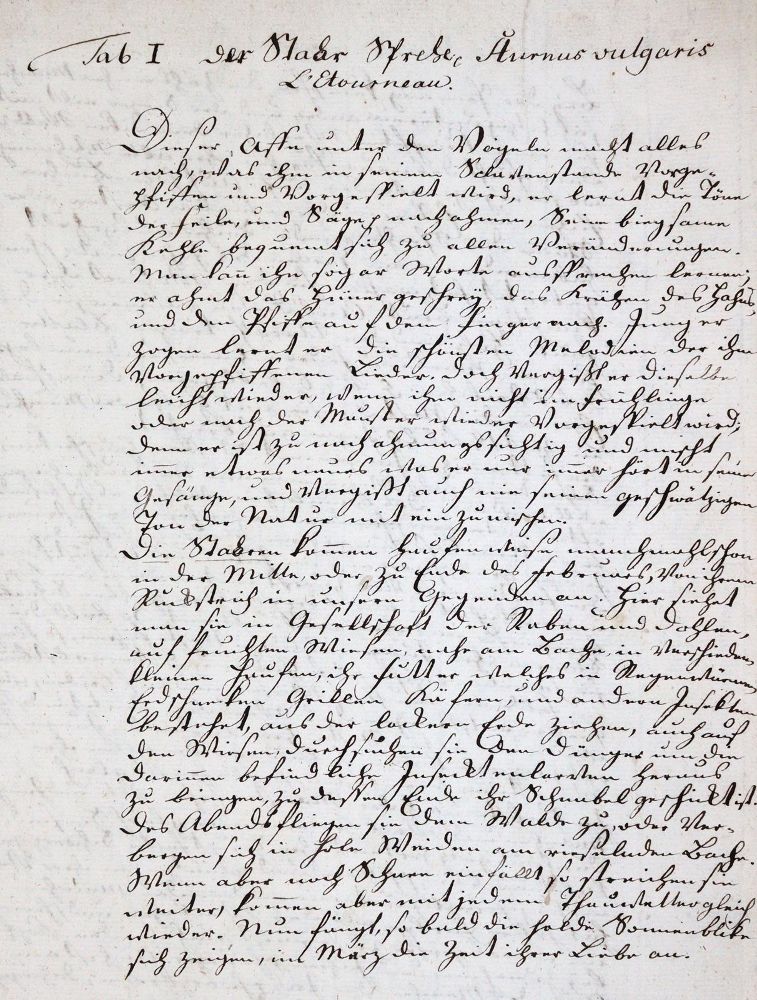 Tab I der Stahr Sprehe, Sturnus vulgaris
L'Etourneau.
Dieser Affe unter den Vögeln macht alles
nach, was ihm in seinem Sclavenstande Vorge-
pfiffen und Vorgespielt wird, er lernt die Töne
der Feile, und Säge p nachahmen, Seine biegsame
Kehle bequemt sich zu allen Veränderungen.
Man kan ihn sogar Worte aussprechen lernen;
er ahmt das Hünergeschrey, das Krähen des Hahns,
und den Pfiffe auf dem Finger nach. Jung er
zogen lernt er die schönsten Melodien der ihm
Vorgepfiffenen Lieder, doch Vergißt er dieselbe
leicht wieder, wenn ihm nicht im Frühlinge
oder nach der Mauster wieder Vorgespielt wird;
denn er ist zu nachahmungssichtig und mischt
immer etwas neues was er nur immer hört in seine
Gesänge, und Vergißt auch nie seinen geschwätzigen
Ton der Natur mit ein zu mischen.
Die Stahren kommen Haufenweise manchmahl schon
in der Mitte, oder zu Ende des Februars, Von ihrem
Ruckstrich in unsern Gegenden an. Hier siehet
man sie in Gesellschaft der Raben und Dohlen,
auf feuchten Wiesen, nahe am Bache, in Verschieden
kleinen Haufen, ihr Futter welches in Regenwürmen
Erdschneken Grillen Käfern, und andern Insekten
bestehet, aus der lockern Erde ziehen, auch auf
den Wiesen, durchsuchen sie den Dünger um die
darinnen befindliche Insecktenlarven heraus
zu bringen, zu dessen Ende ihr Schnabel geschickt ist.
Des Abends fliegen sie dem Walde zu, oder Ver-
bergen sich in hole Weiden am rieselnden Bache.
Wenn aber noch Schnee einfällt so streichen sie
weiter, kommen aber mit jedem Thauwetter gleich
wieder. Nun fängt, so bald die holde Sonnenblike
sich zeigen, im März die Zeit ihrer Liebe an.